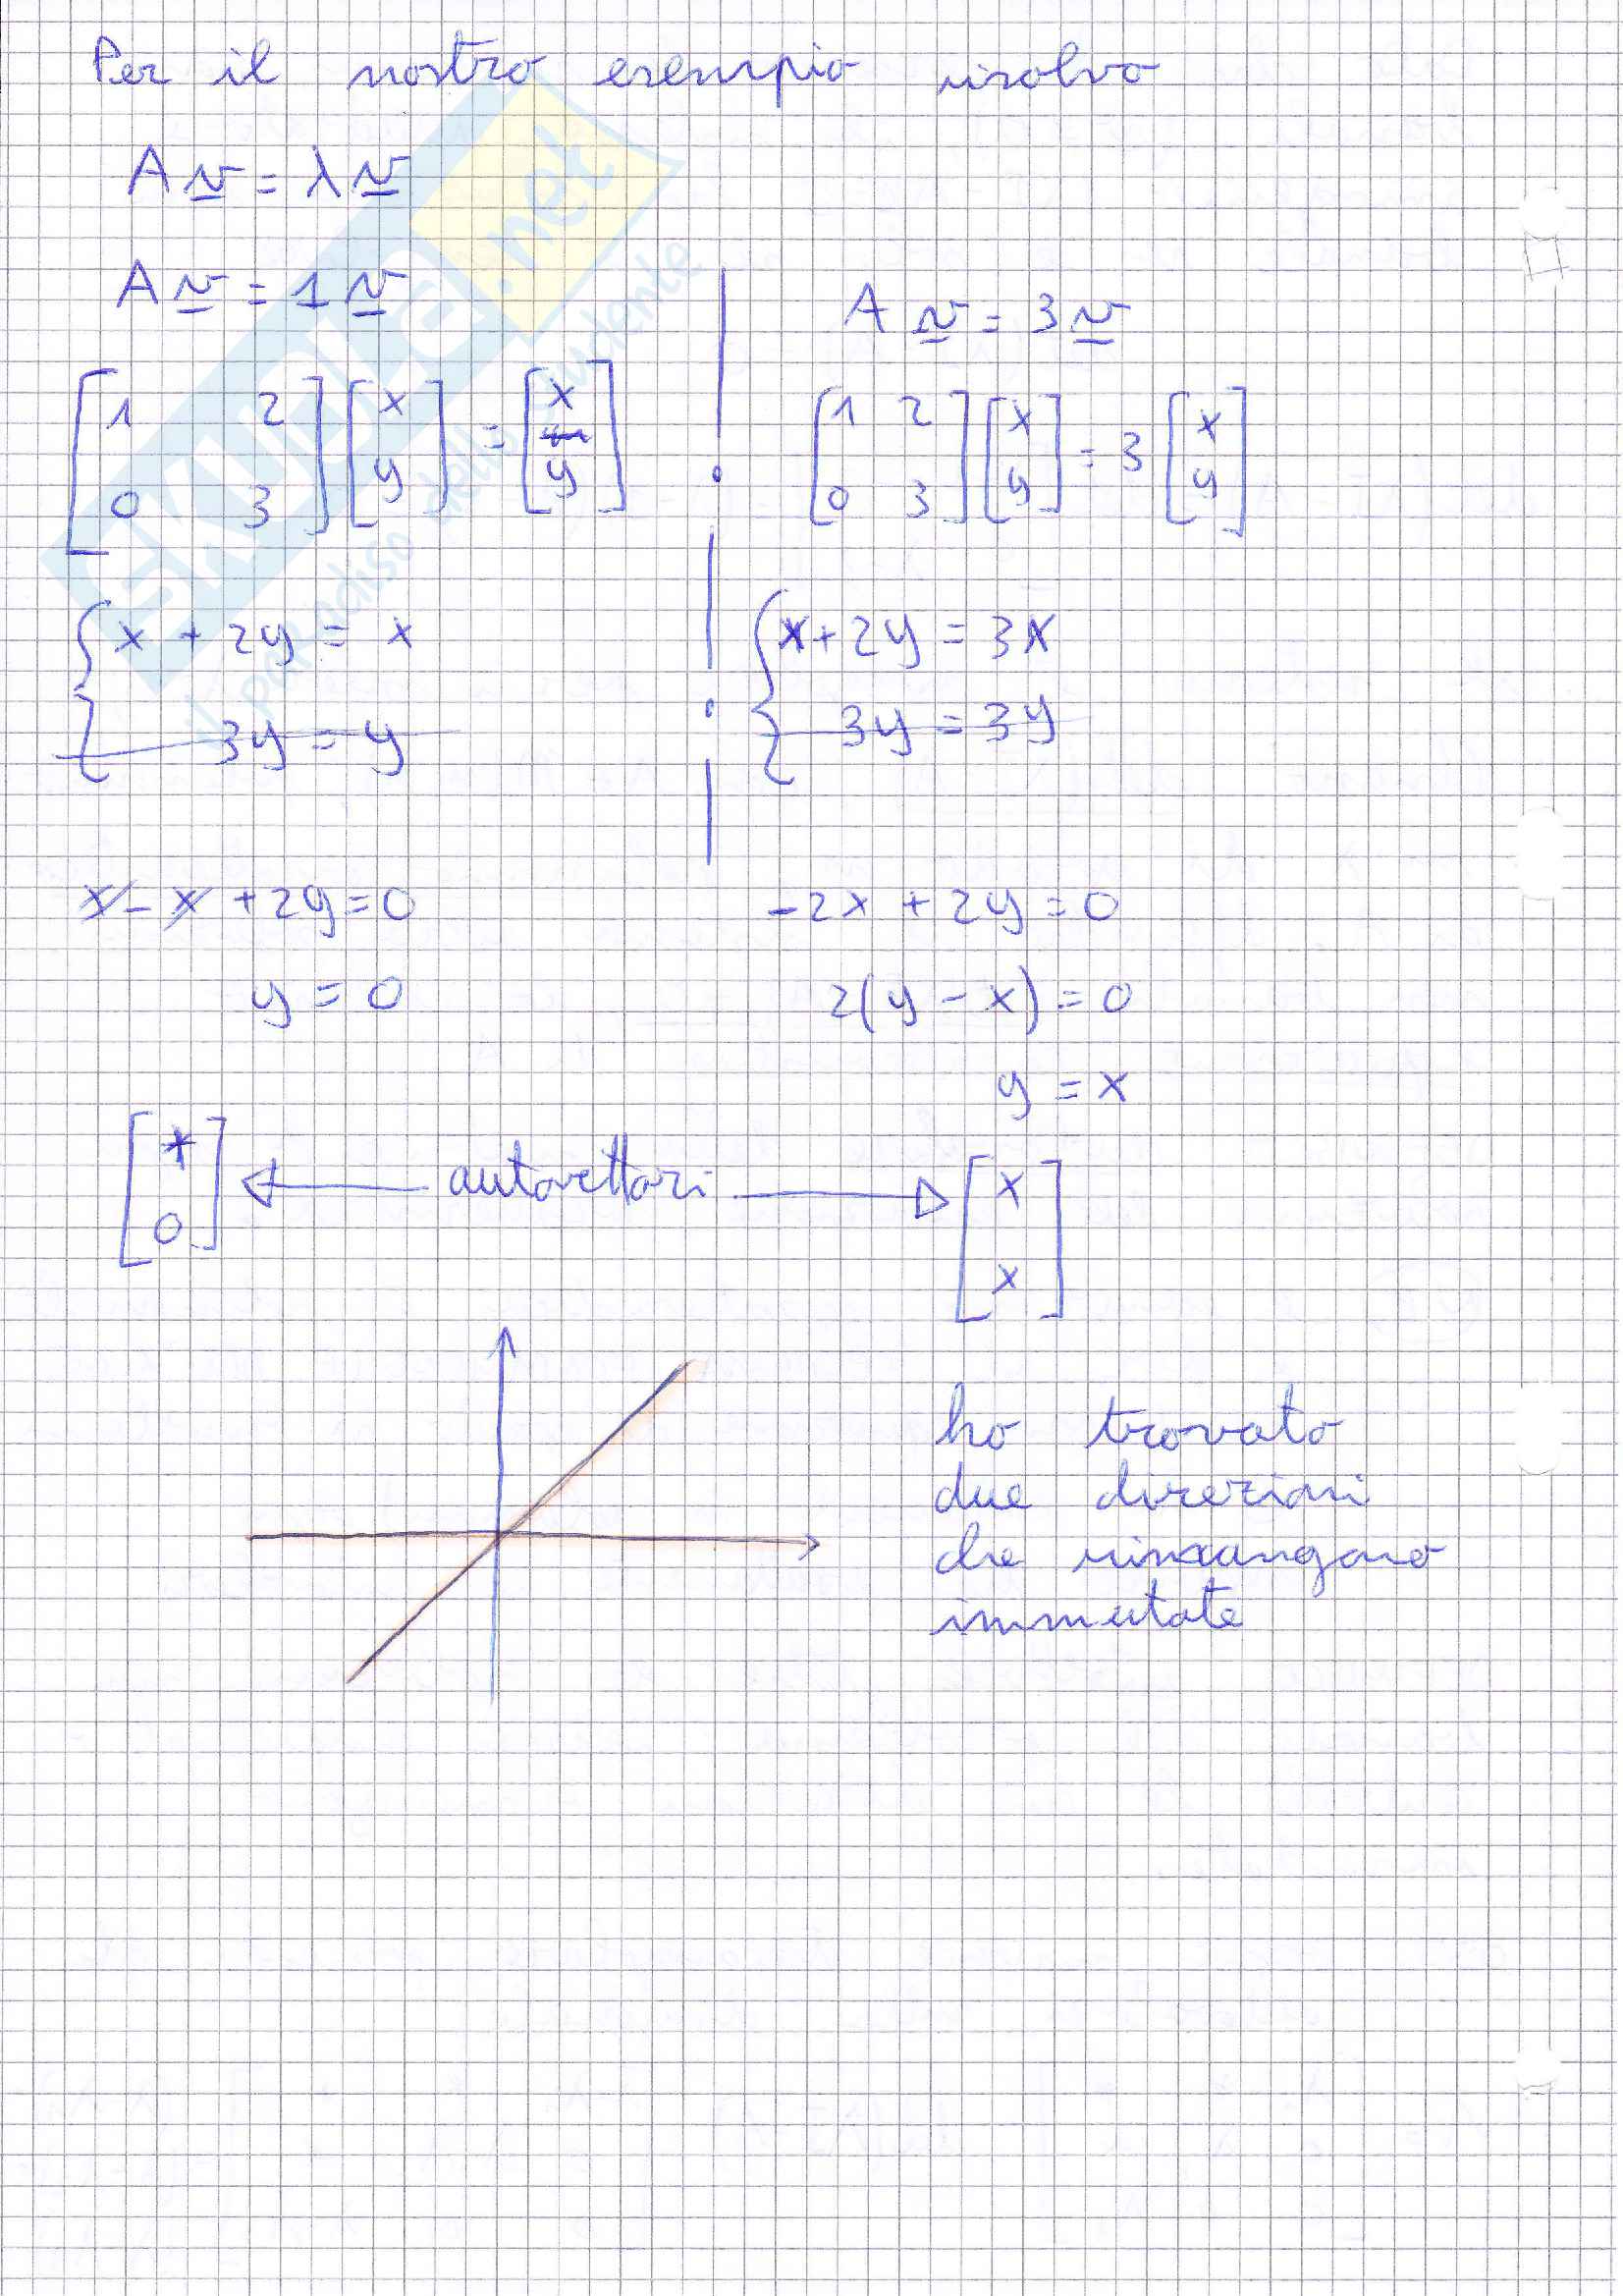 Per il nostro esempio risolvo
A v = λ v
A v = 1 v
[1 2; 0 3] [x; y] = [x; y]
{x + 2y = x
3y = y
x - x + 2y = 0
y = 0
[*; 0] ← autovettori → [x; x]
A v = 3 v
[1 2; 0 3] [x; y] = 3 [x; y]
{x + 2y = 3x
3y = 3y
-2x + 2y = 0
2(y - x) = 0
y = x
ho trovato
due direzioni
che rimangono
immutate
SKUOLA.net
il paradiso dello studente